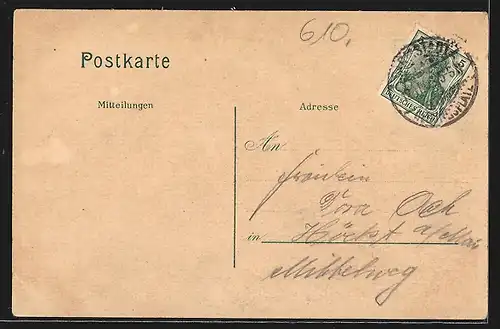 610.
Postkarte
DEUTSCHES REICH
Mitteilungen
Adresse
An
Fräulein
Dora Och
in Höchst a/Main
Mittelweg